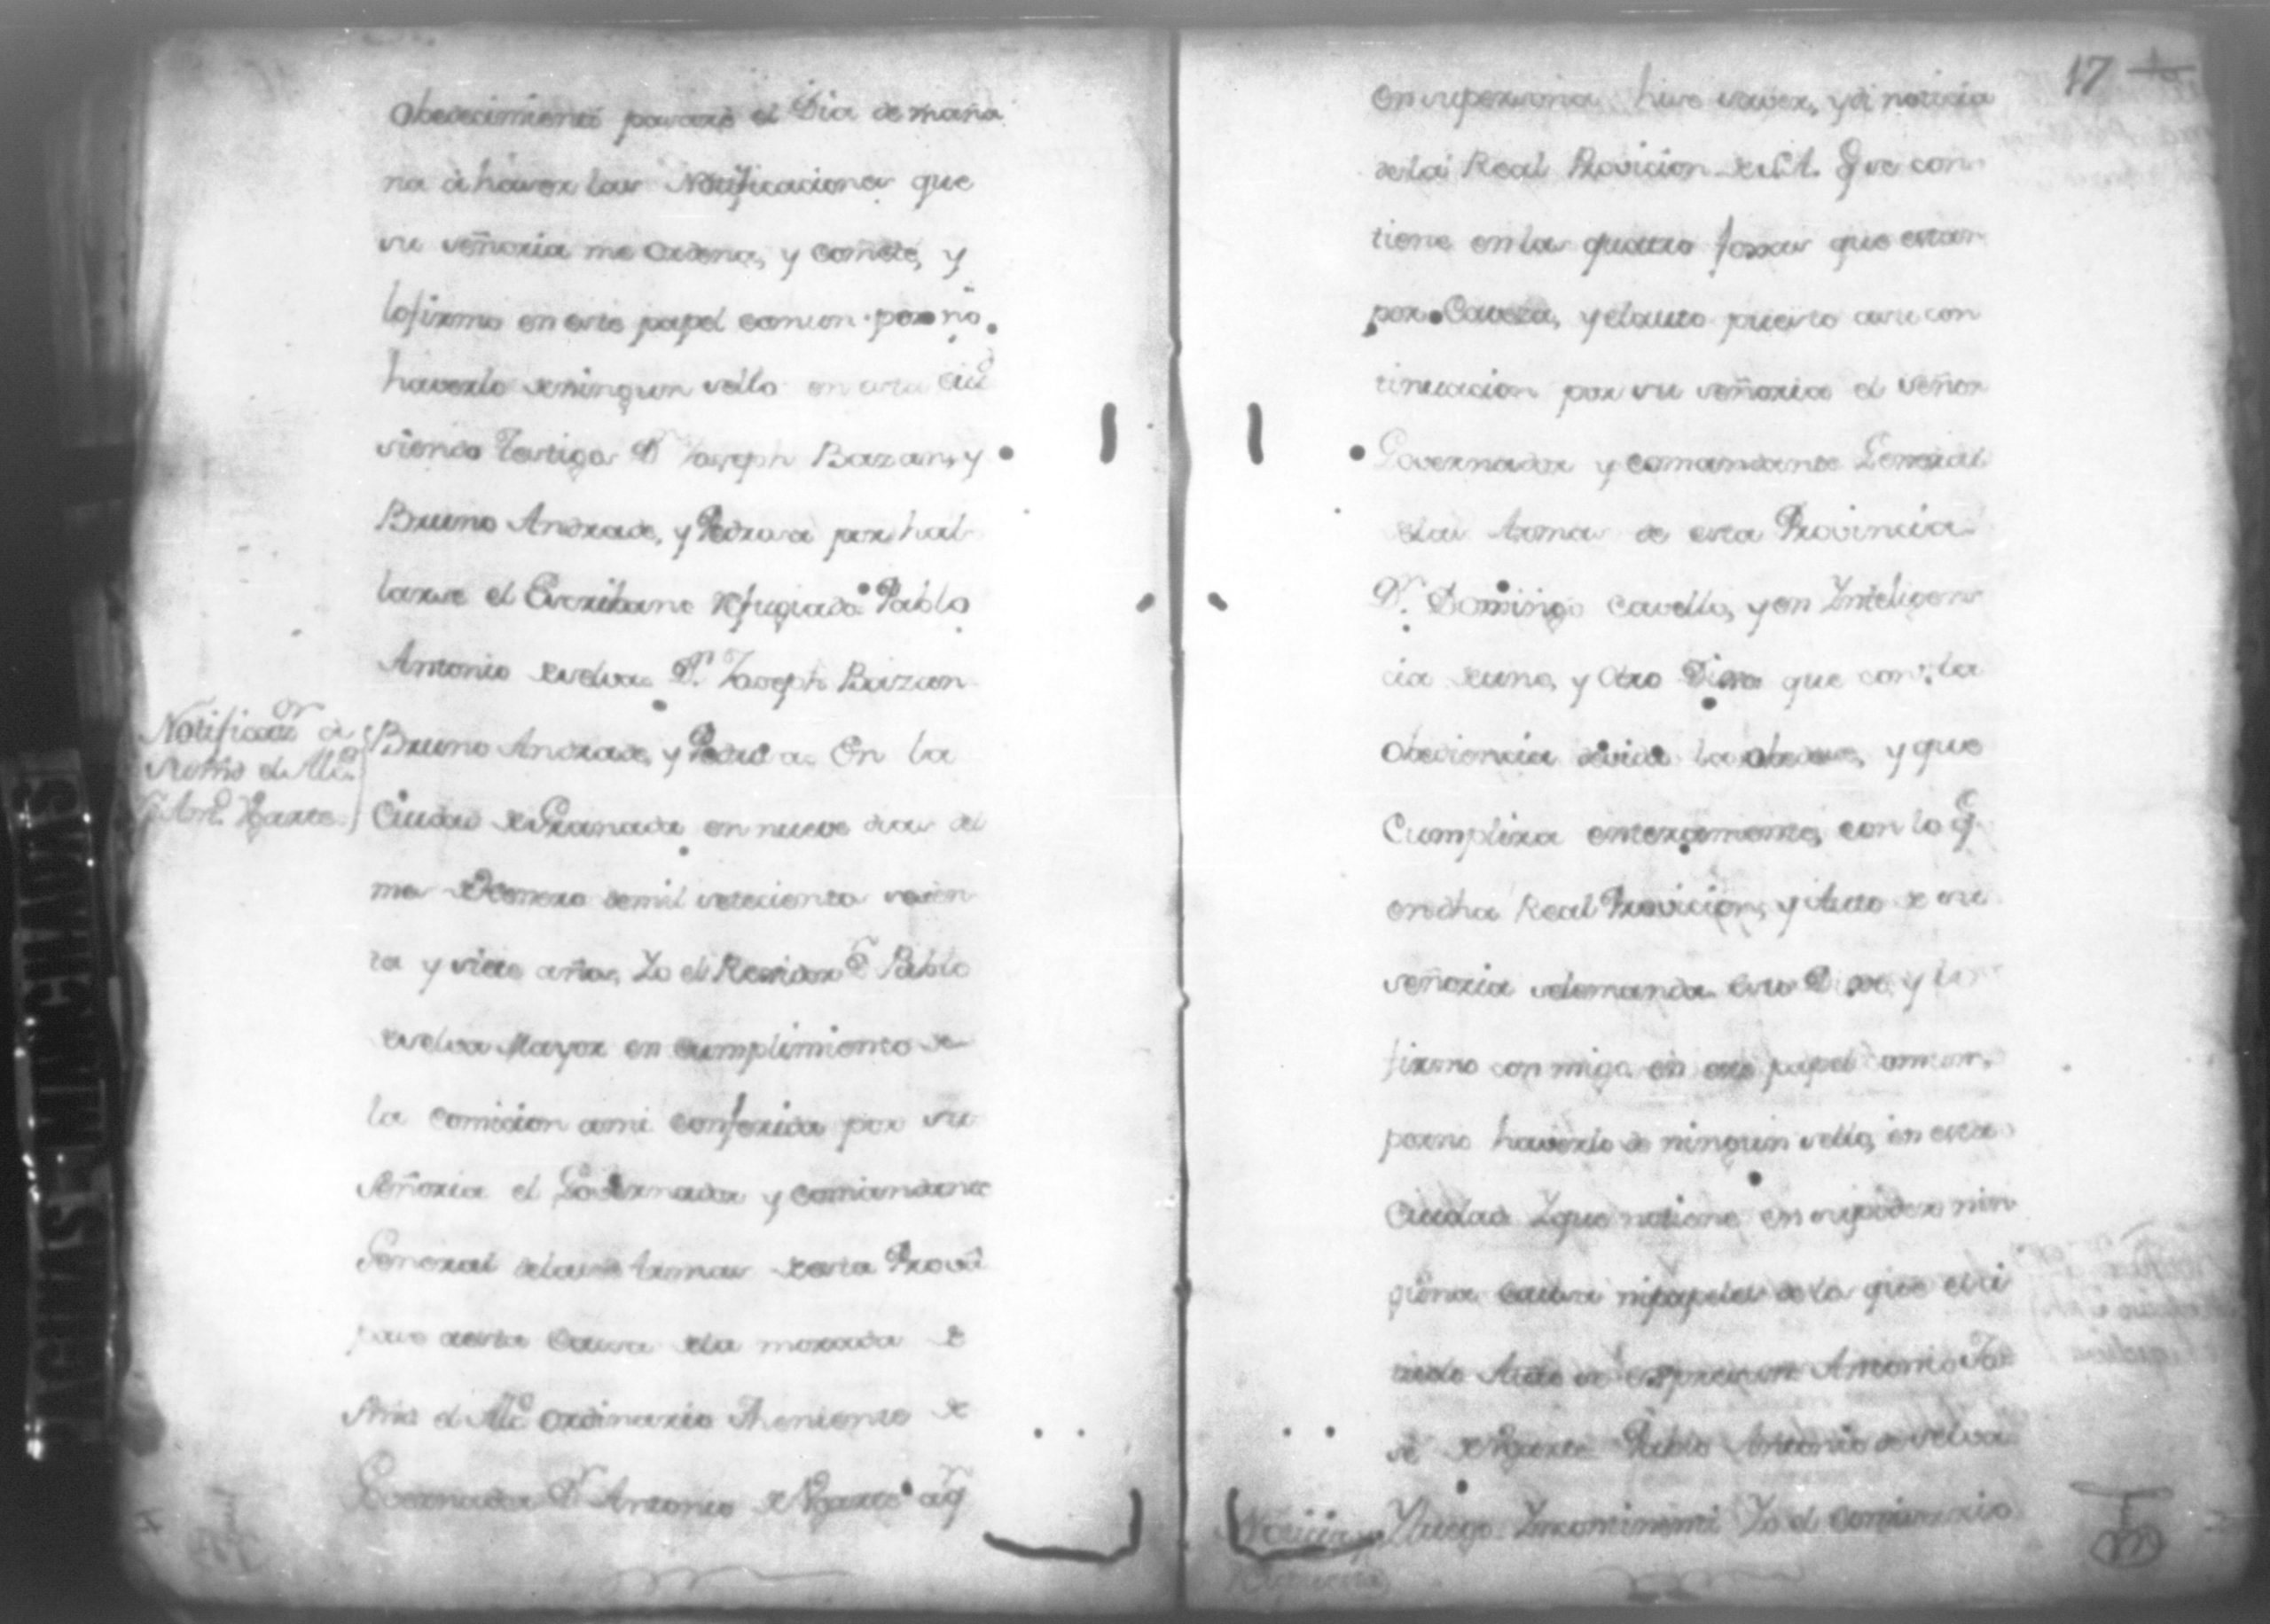 obedecimiento pasaré el Dia de maña
na à haver las Notificaciones que
su señoria me ordena, y comete, y
lo firmo en este papel comun por no
haverlo de ningun sello en esta ciud
siendo Testigos Dn Joseph Bazan, y
Bruno Andrade, y Pedrosa por hal
larse el Escribano refugiado Pablo
Antonio de selva Dn Joseph Bazan
Bruno Andrade, y Pedrosa En la
Notificacn a
Sumd el Alce
Dn Antº Ugarte
Ciudad de Granada en nueve dias del
mes de Henero de mil setecientos seten
ta y siete años, Yo el Regidor Dn Pablo
de selva Mayor en cumplimiento de
la comicion a mi conferida por su
señoria el Governador y comandante
General de las Armas de esta Provª
pase de esta causa a la morada de
Smd el Alce ordinario Theniente de
Governador Dn Antonio de Ugarte aq
17
En supersona hise saver, y di noticia
de la Real Provicion de S.A. Que con
tiene en las quatro foxas que estan
por Caveza, y el auto puesto a su con
tinuacion por su señoria el señor
Governador y comandante General
de las Armas de esta Provincia
Dn. Domingo Cavello, y en Inteligen
cia de uno, y otro Dixo que con la
obediencia devida la obedece, y que
Cumplira enteramente, con lo q
en dha Real Provicion, y Auto de su
señoria se le manda esto Dixo, y lo
firmo con migo en este papel comun,
por no haverlo de ningun sello, en esta
Ciudad Y que no tiene en su poder nin
guna causa ni papeles de los que el ci
tado Auto se expresan Antonio Jo
sé de Ugarte Pablo Antonio de selva
Noticia y
Respuesta
Y luego Yncontinenti Yo el comissario